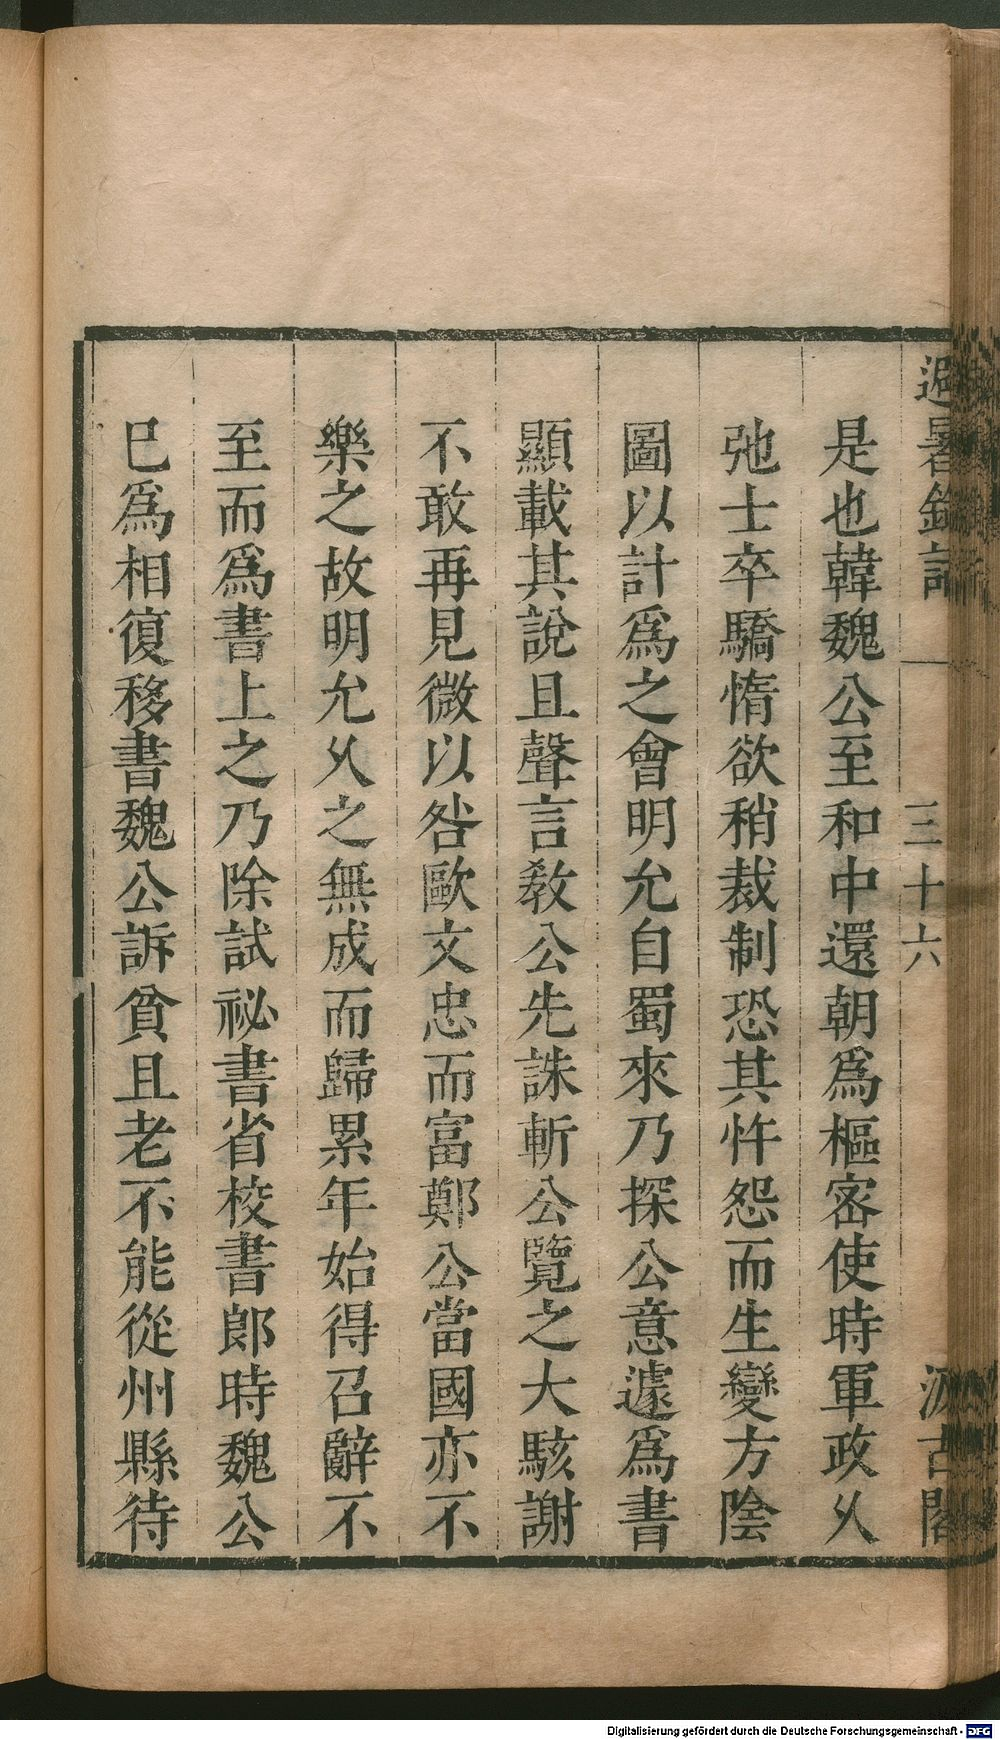 避暑錄話
三十六
汲古閣
是也韓魏公至和中還朝爲樞密使時軍政乆
弛士卒驕惰欲稍裁制恐其忤怨而生變方陰
圖以計爲之會明允自蜀來乃探公意遽爲書
顯載其說且聲言敎公先誅斬公覽之大駭謝
不敢再見微以咎歐文忠而富鄭公當國亦不
樂之故明允乆之無成而歸累年始得召辭不
至而爲書上之乃除試祕書省校書郞時魏公
巳爲相復移書魏公訴貧且老不能從州縣待
Digitalisierung gefördert durch die Deutsche Forschungsgemeinschaft - DFG